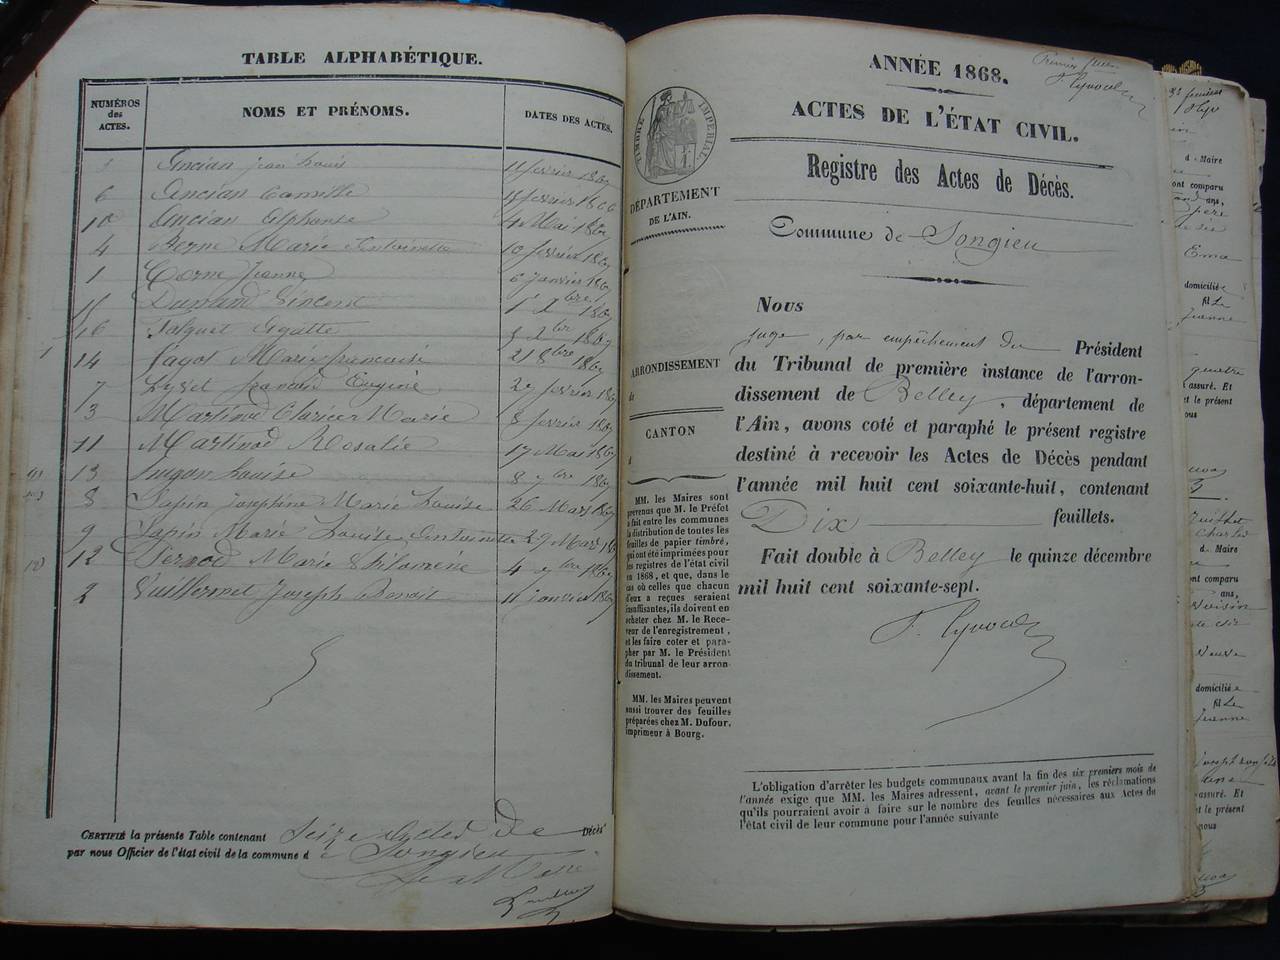 TABLE ALPHABÉTIQUE.
NUMÉROS
des
ACTES.
NOMS ET PRÉNOMS.
DATES DES ACTES.
Ancian jean Louis 11 février 1867
6 Ancian Camille
10 Ancian Alphonse 4 Mai 1867
4 Berne Marie Antoinette 10 février 1867
1 Corne Jeanne 6 janvier 1867
15 Durand Vincent 1er xbre 1867
16 Agatte 5 xbre 1867
14 Jagot Marie françoise 21 8bre 1867
7 Eugénie 27 février 1867
3 Martinod Marie 8 février 1867
11 Martinod Rosalie 17 Mai 1867
13 Louise 8 7bre 1867
8 Sapin Joséphine Marie Louise 26 Mars 1867
9 Sapin Marie Louise Antoinette 29 Mars 1867
12 Marie Philomène 4 7bre 1867
2 Vuillermet Joseph Benoit 11 janvier 1867
CERTIFIÉ la présente Table contenant Seize Actes De Décès
par nous Officier de l'état civil de la commune d Songieu
Le Maire
ANNÉE 1868.
Premier
ACTES DE L'ÉTAT CIVIL.
TIMBRE IMPÉRIAL
Registre des Actes de Décès.
DÉPARTEMENT
DE L'AIN.
Commune de Songieu
ARRONDISSEMENT
de
CANTON
d
MM. les Maires sont
prévenus que M. le Préfet
a fait entre les communes
la distribution de toutes les
feuilles de papier timbré,
qui ont été imprimées pour
les registres de l'état civil
en 1868, et que, dans le
cas où celles que chacun
d'eux a reçues seraient
insuffisantes, ils doivent en
acheter chez M. le Rece-
veur de l'enregistrement,
et les faire coter et para-
pher par M. le Président
du tribunal de leur arron-
dissement.
MM. les Maires peuvent
aussi trouver des feuilles
préparées chez M. Dufour,
imprimeur à Bourg.
Nous
juge, par empêchement du Président
du Tribunal de première instance de l'arron-
dissement de Belley, département de
l'Ain, avons coté et paraphé le présent registre
destiné à recevoir les Actes de Décès pendant
l'année mil huit cent soixante-huit, contenant
Dix feuillets.
Fait double à Belley le quinze décembre
mil huit cent soixante-sept.
L'obligation d'arrêter les budgets communaux avant la fin des six premiers mois de
l'année exige que MM. les Maires adressent, avant le premier juin, les réclamations
qu'ils pourraient avoir à faire sur le nombre des feuilles nécessaires aux Actes de
l'état civil de leur commune pour l'année suivante